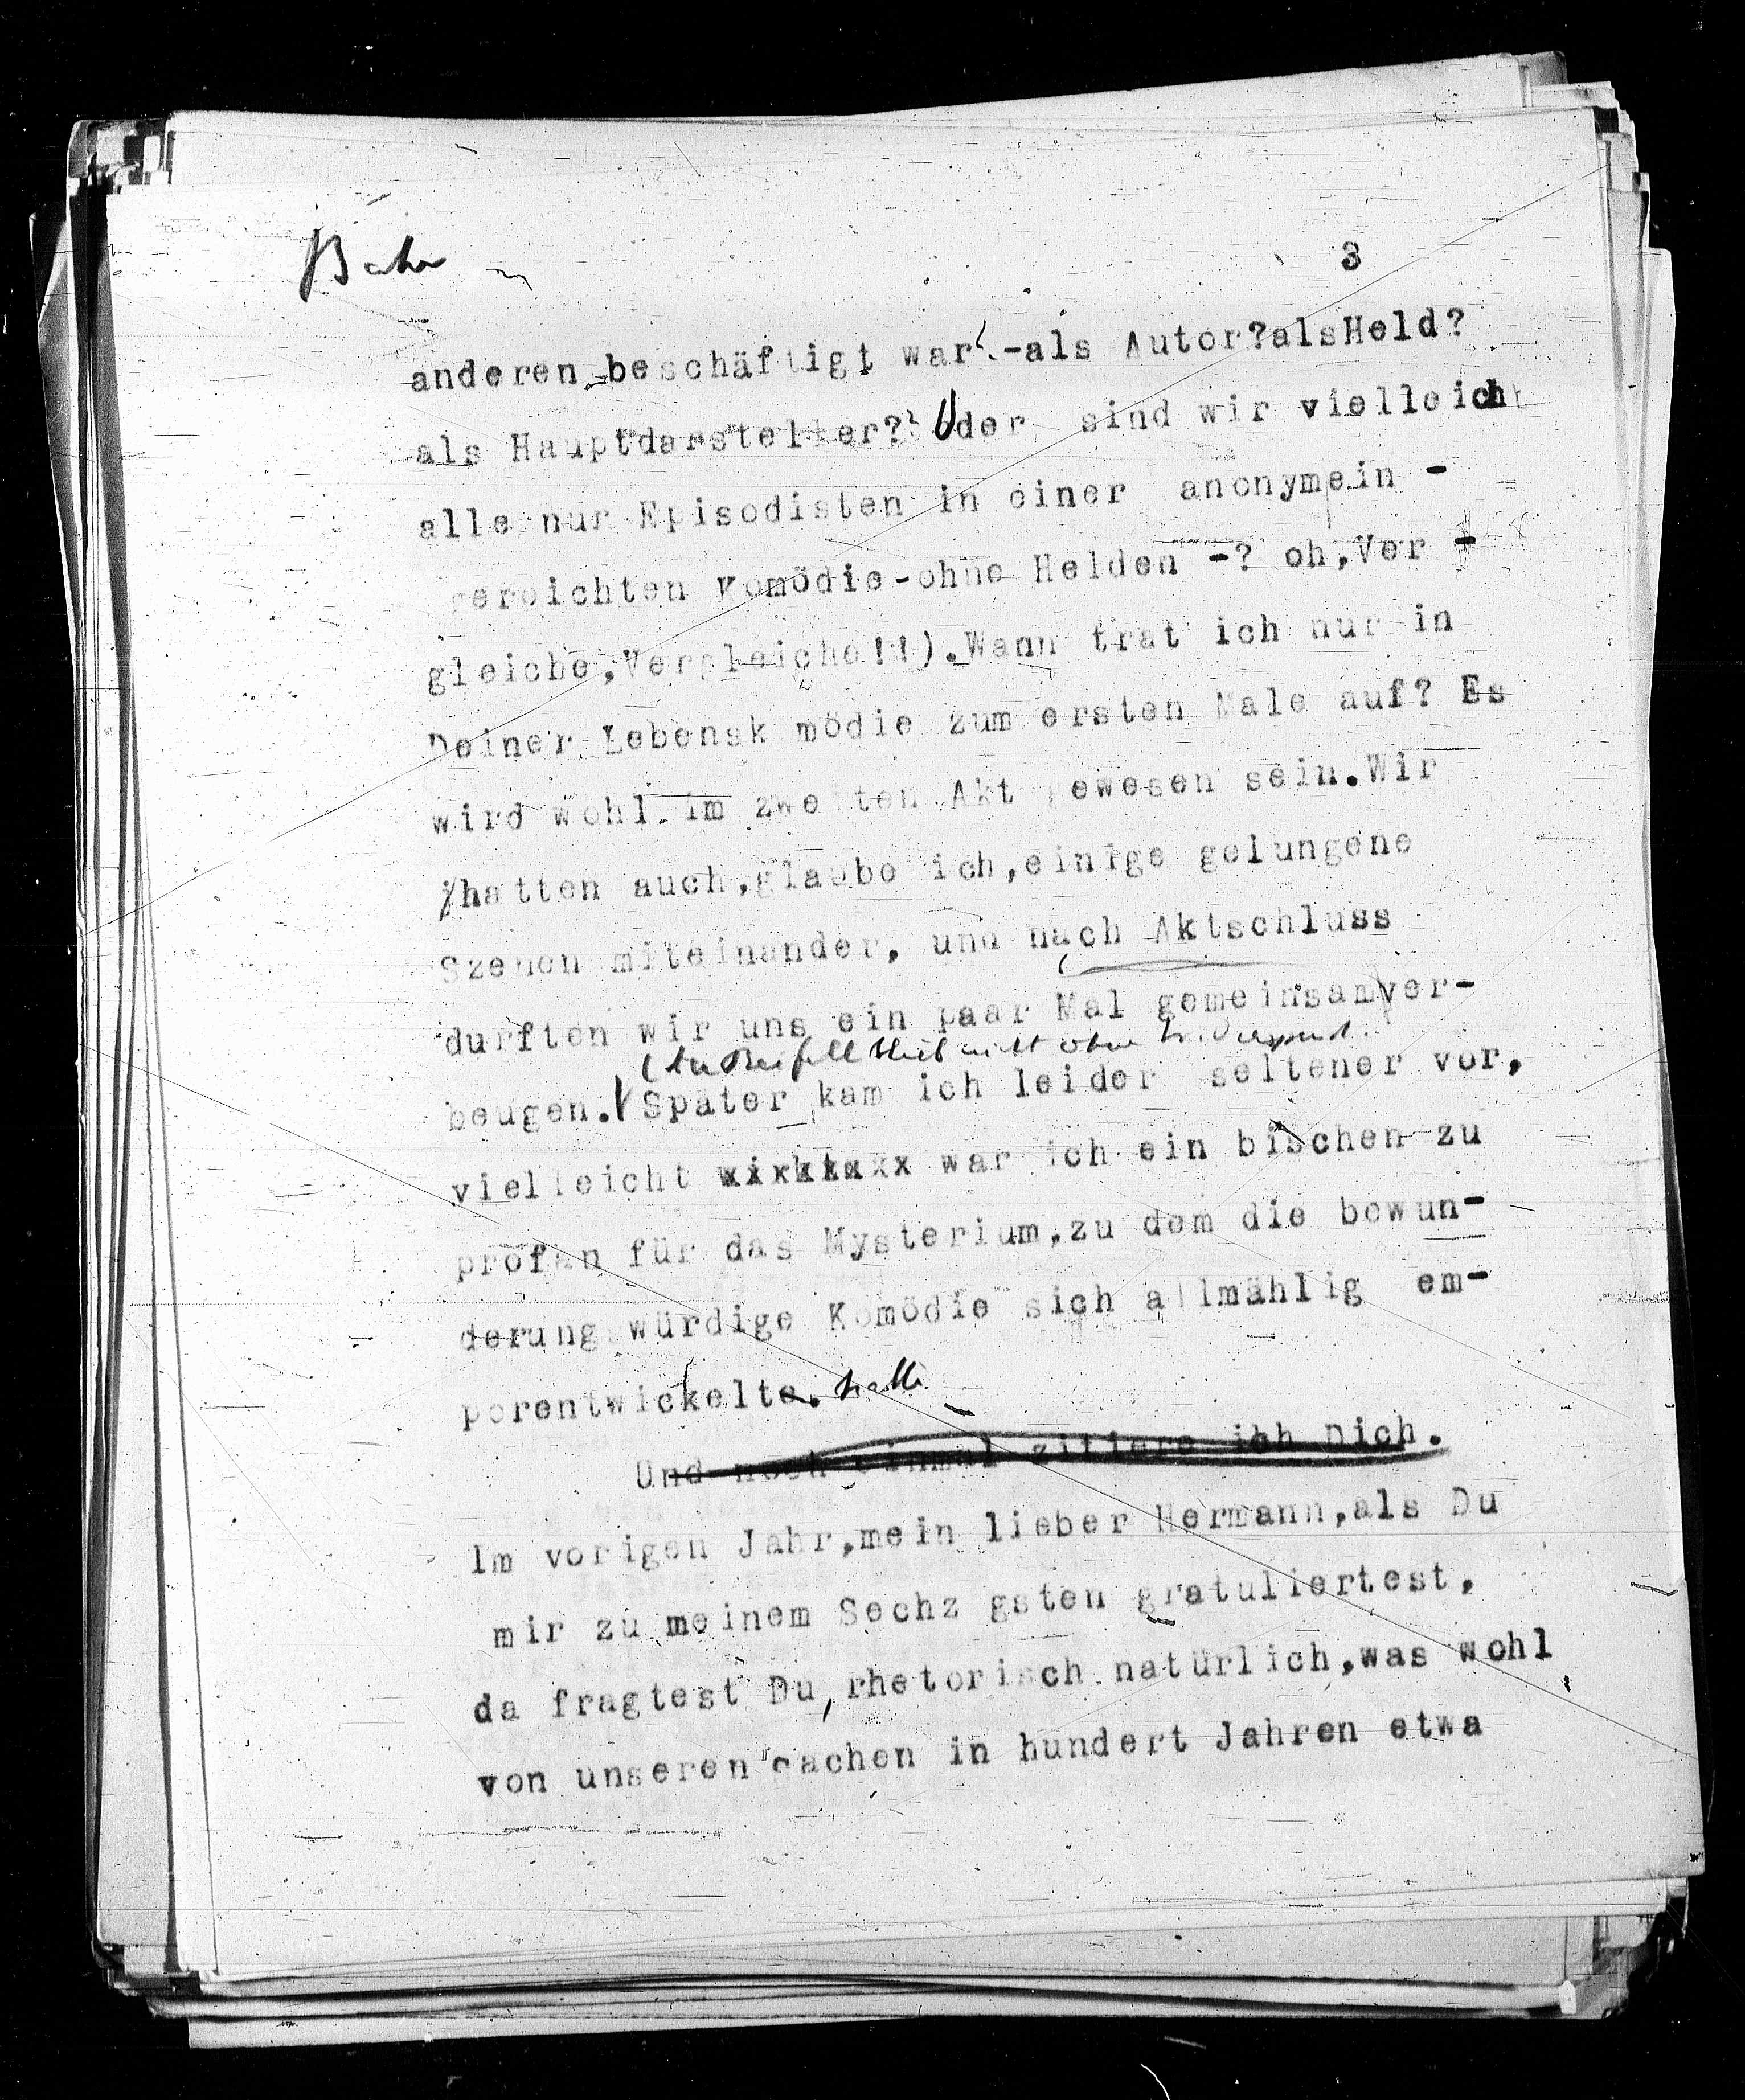 Bahr
3
anderen beschäftigt war -als Autor?alsHeld?
als Hauptdarsteller? Oder sind wir vielleicht
alle nur Episodisten in einer anonymein -
reichten Komödie-ohne Helden -? oh,Ver -
gleiche,Vergleiche!!).Wann trat ich nur in
Deiner Lebensk mödie zum ersten Male auf? Es
wird wohl im zweiten Akt gewesen sein.Wir
hatten auch,glaube ich,einige gelungene
Szenen miteinander, und nach Aktschluss
durften wir uns ein paar Mal gemeinsam ver-
(der Beifall blieb nicht ohne Widerspruch.
beugen. Später kam ich leider seltener vor,
vielleicht war ich ein bischen zu
profan für das Mysterium,zu dem die bewun-
derungswürdige Komödie sich allmählig em-
porentwickelte. hatte
Und noch einmal zitiere ich Dich.
Im vorigen Jahr,mein lieber Hermann,als Du
mir zu meinem Sechz gsten gratuliertest,
da fragtest Du, rhetorisch natürlich,was wohl
von unseren Sachen in hundert Jahren etwa